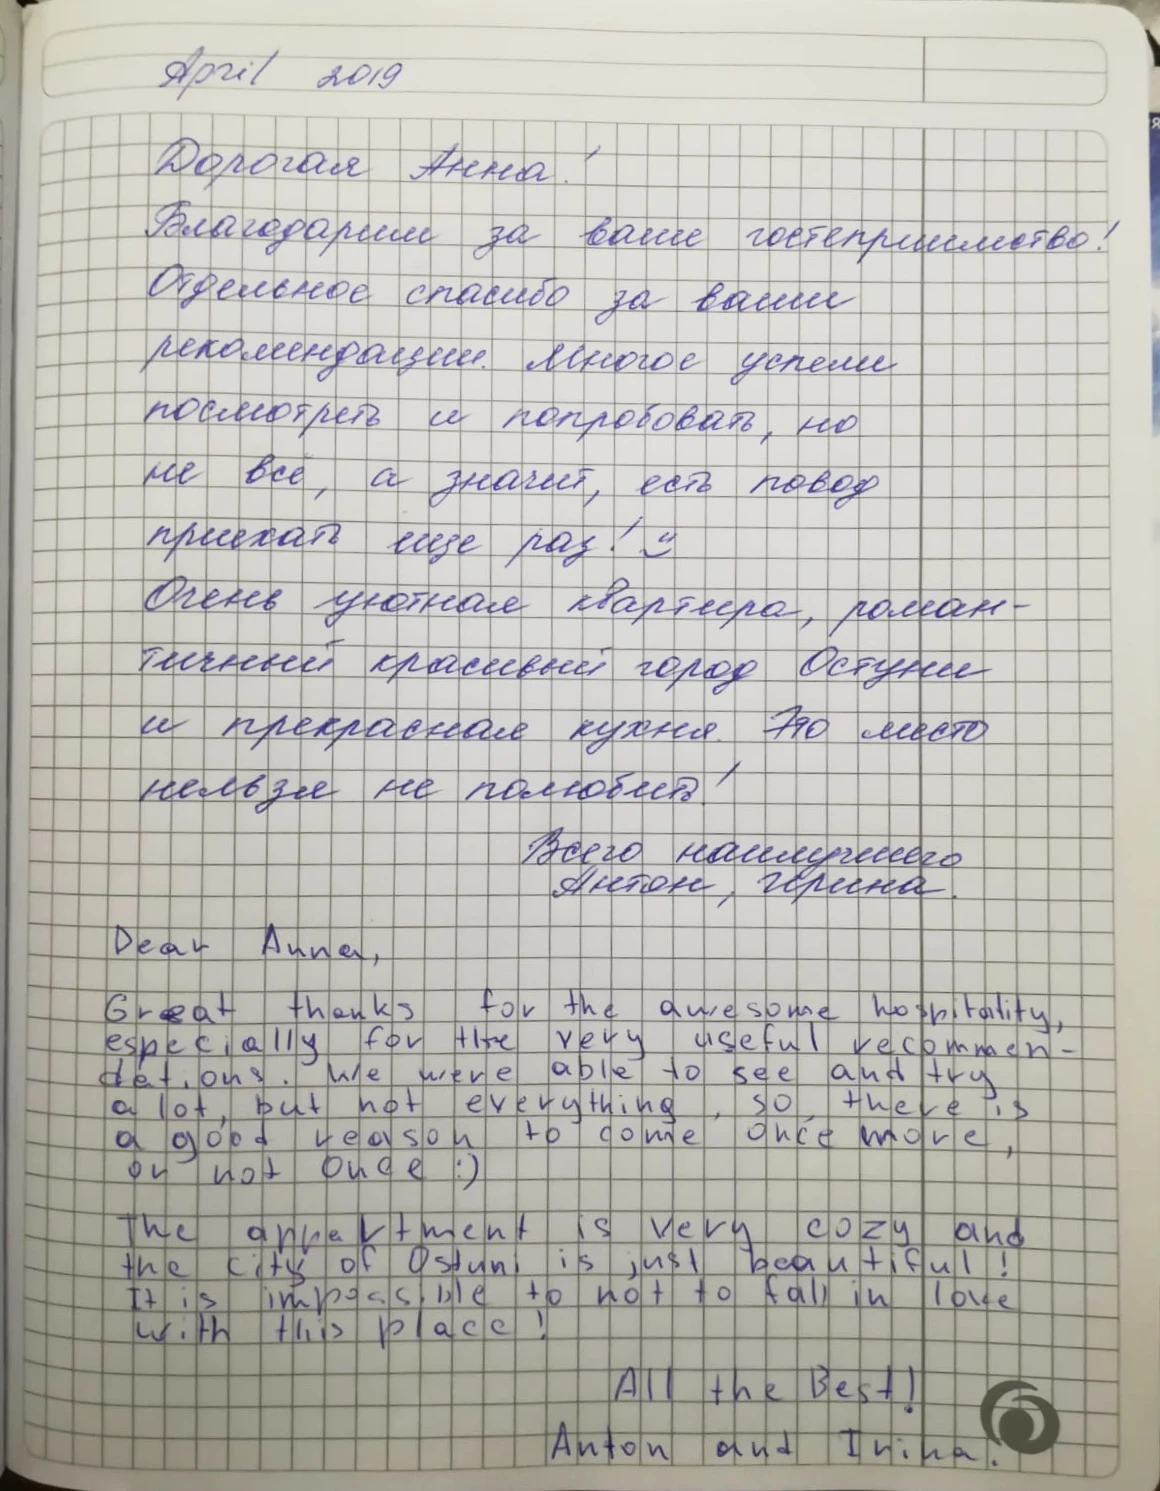 April 2019
Дорогая Анна!
Благодарим за ваше гостеприимство!
Отдельное спасибо за ваши
рекомендации. Многое успели
посмотреть и попробовать, но
не всё, а значит, есть повод
приехать еще раз! :)
Очень уютная квартира, роман-
тичный красивый город Остуни
и прекрасная кухня. Это место
нельзя не полюбить!
Всего наилучшего
Антон, Ирина.
Dear Anna,
Great thanks for the awesome hospitality,
especially for the very useful recommen-
dations. We were able to see and try
a lot, but not everything, so, there is
a good reason to come once more,
or not once :)
The appartment is very cozy and
the city of Ostuni is just beautiful!
It is impossible to not to fall in love
with this place!
All the Best!
Anton and Irina.